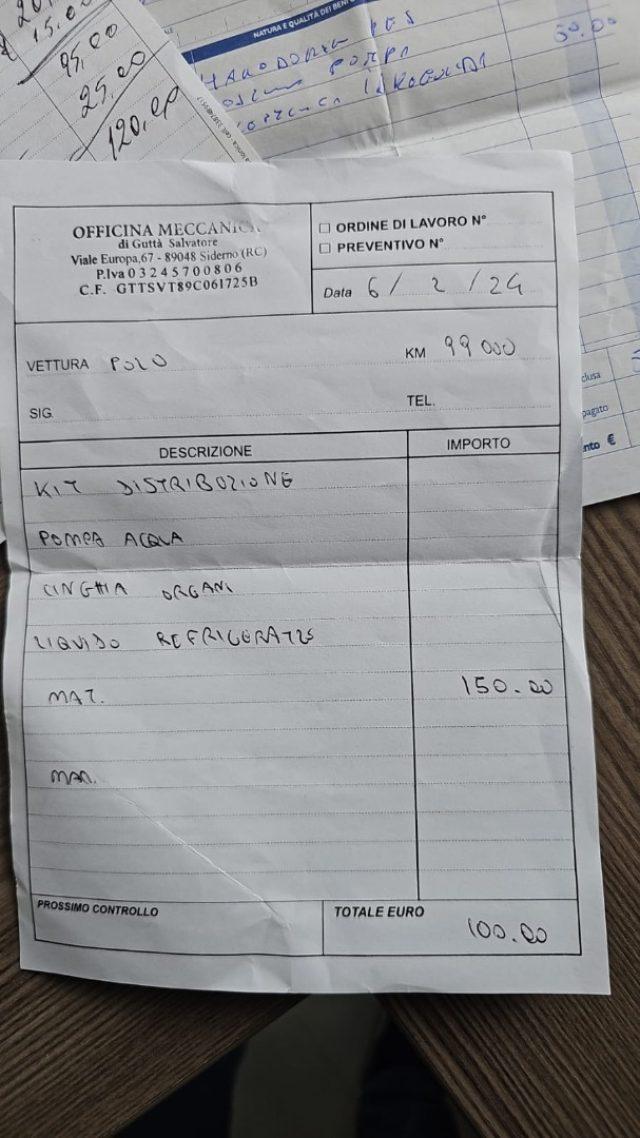 15.00
95.00
25.00
120,00
NATURA E QUALITÀ DEI BENI
50.00
OFFICINA MECCANICA
di Guttà Salvatore
Viale Europa,67 - 89048 Siderno (RC)
P.Iva 0 3 2 4 5 7 0 0 8 0 6
C.F. GTTSVT89C061725B
☐ ORDINE DI LAVORO N°
☐ PREVENTIVO N°
Data 6 / 2 / 24
VETTURA POLO
KM 99 000
SIG.
TEL.
DESCRIZIONE IMPORTO
KIT DISTRIBUZIONE
POMPA ACQUA
CINGHIA ORGANI
LIQUIDO
MAT. 150.00
MAN.
PROSSIMO CONTROLLO
TOTALE EURO 100.00
clusa
pagato
nto €